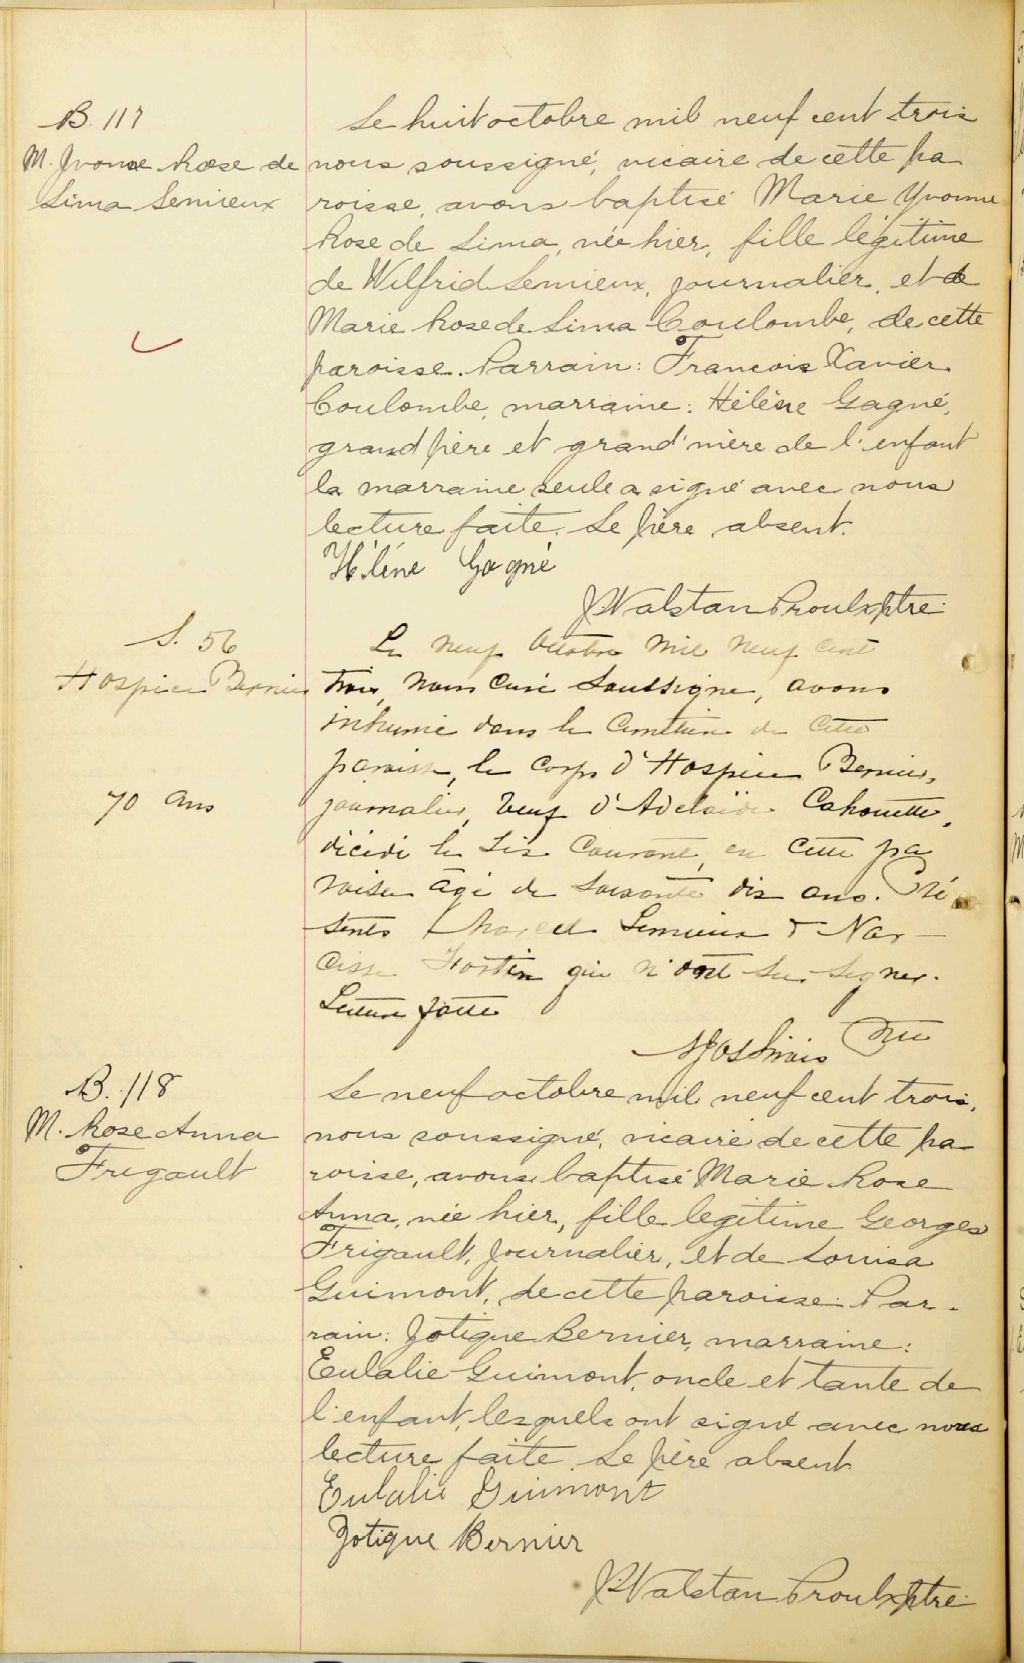 B. 117
M. Yvonne Rose de
Lima Lemieux
Le huit octobre mil neuf cent trois
nous soussigné, vicaire de cette pa
roisse, avons baptisé Marie Yvonne
Rose de Lima, née hier, fille légitime
de Wilfrid Lemieux, journalier, et de
Marie Rose de Lima Coulombe, de cette
paroisse. Parrain: François Xavier
Coulombe, marraine: Hélène Gagné,
grand père et grand'mère de l'enfant
la marraine seule a signé avec nous
lecture faite. Le père absent.
Hélène Gagné
J. Walstan Proulx ptre.
S. 56
Hospice Bernier
70 ans
Le neuf Octobre mil neuf cent
trois, Nous Curé Soussigné, avons
inhumé dans le Cimetière de cette
paroisse, le corps d'Hospice Bernier,
journalier, veuf d'Adelaïde Cahouette,
décédé le six courant, en cette pa
roisse âgé de soixante dix ans. Pré
sents Lemieux & Nar-
cisse Fortin qui n'ont su signer.
Lecture faite
Ptre
B. 118
M. Rose Anna
Frigault
Le neuf octobre mil neuf cent trois,
nous soussigné, vicaire de cette pa
roisse, avons baptisé Marie Rose
Anna, née hier, fille legitime Georges
Frigault, journalier, et de Louisa
Guimont, de cette paroisse. Par-
rain: Zotique Bernier, marraine:
Eulalie Guimont, oncle et tante de
l'enfant, lesquels ont signé avec nous
lecture faite. Le père absent
Eulalie Guimont
Zotique Bernier
J. Walstan Proulx ptre.